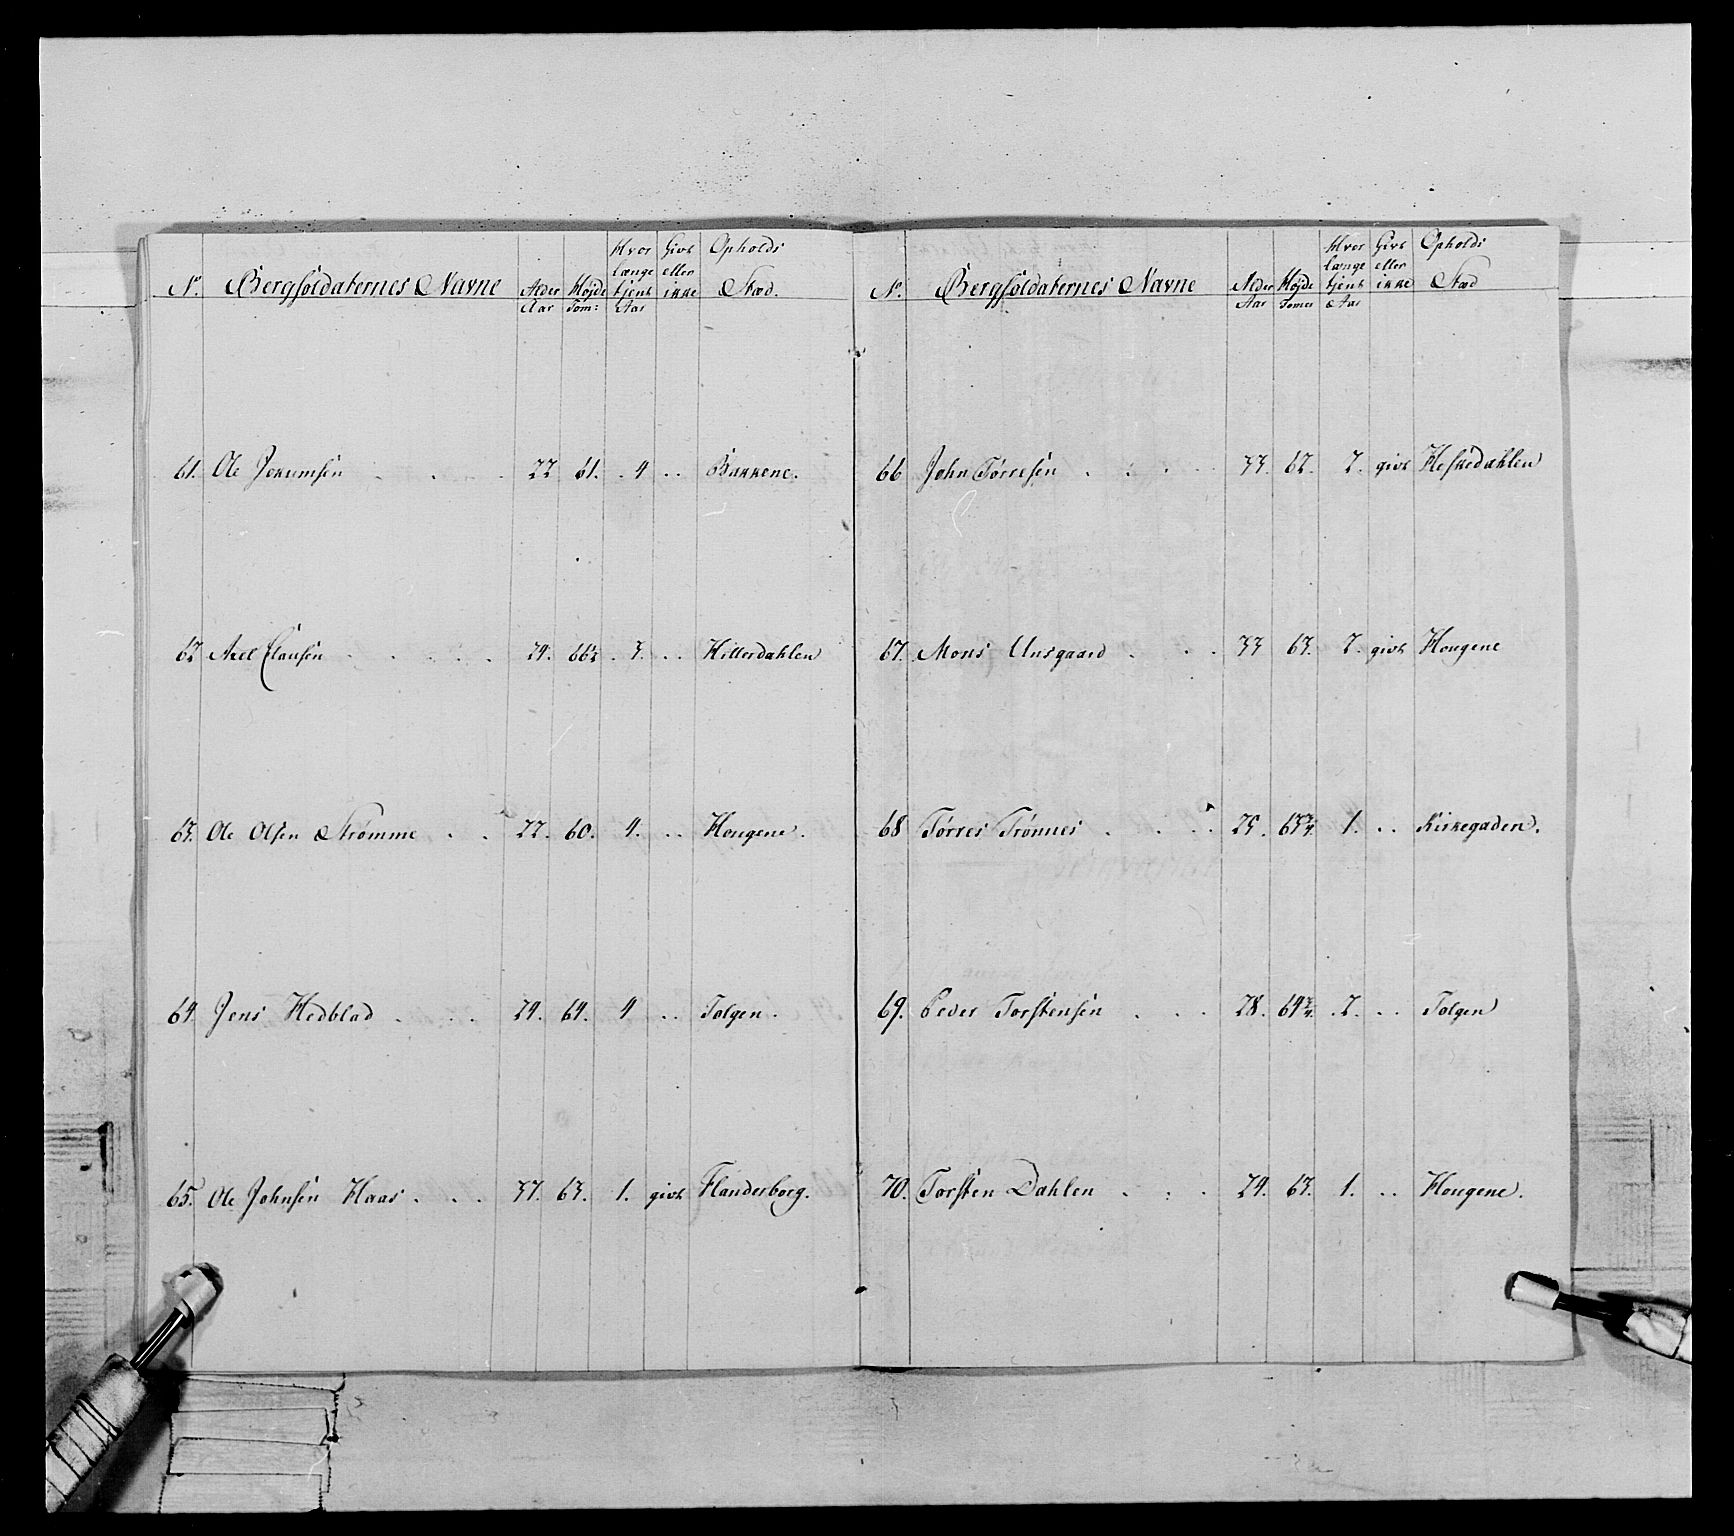 No. Bergsoldaternes Navne Alder Aar Højde Tom: Hvor længe tjent Aar Givt eller ikke Opholds Stæd.
61. Ole Jensen 22 61. 4 Bakkene.
62 Axel Clausen 24. 66½ 3. Hitterdahlen
63. Ole Olsen Strømme 22. 60. 4. Hougene.
64. Jens Hedblad 24. 64. 4 Tolgen.
65. Ole Johnsen Haas 37. 63. 1. givt Flanderborg.
No. Bergsoldaternes Navne Alder Aar Højde Tomer Hvor længe tjent Aar Givt eller ikke Opholds Stæd
66 John Tørresen 33. 62. 2. givt Hessedahlen
67. Mons Unsgaard 33 63. 2. givt Hougene
68 Tørres Trønnes 25. 63¾ 1. Kirkegaden.
69. Peder Torstensen 28. 64¾ 2. Tolgen
70. Torsten Dahlen 24. 63. 1. Hougene.